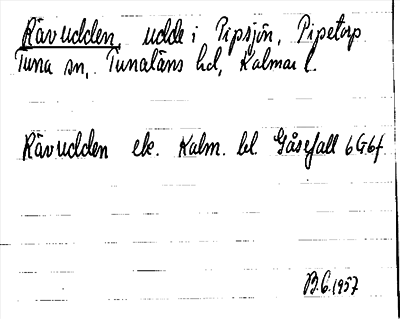 Rävudden, udde i Pipsjön, Pipetorp
Tuna sn, Tunaläns hd, Kalmar l.
Rävudden ek. Kalm. bl. Gåsefall 6G6f
B.C. 1957